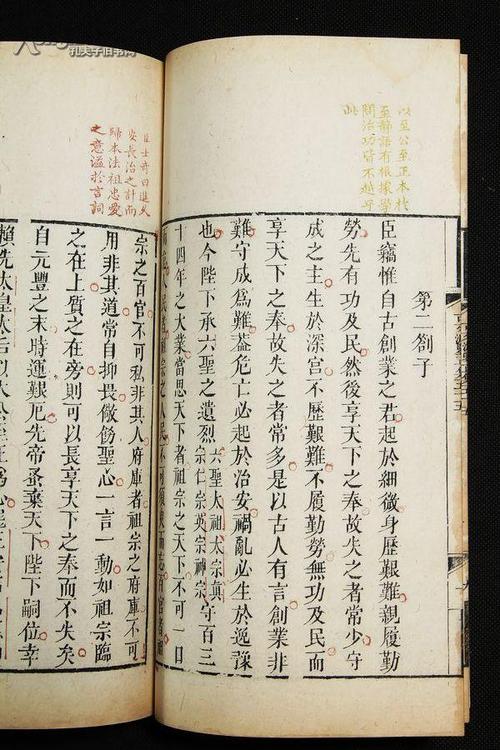 孔夫子旧书网
以至公至正本枝
至辭語有根據學
問治功皆不越乎
此
第二劄子
臣竊惟自古創業之君起於細微身歷艱難親履勤
勞先有功及民然後享天下之奉故失之者常少守
成之主生於深宮不歷艱難不履勤勞無功及民而
享天下之奉故失之者常多是以古人有言創業非
難守成爲難蓋危亡必起於治安禍亂必生於逸豫
也今陛下承六聖之遺烈六聖太祖太宗真宗仁宗英宗神宗守百三
十四年之大業當思天下者祖宗之天下不可一日
人民
士奇曰進久
安長治之計而
歸本法祖忠愛
之意溢於言詞
宗之百官不可私非其人府庫者祖宗之府庫不可
用非其道常自抑畏儆飭聖心一言一動如祖宗臨
之在上質之在旁則可以長享天下之奉而不失矣
自元豐之末時運艱厄先帝蚤棄天下陛下嗣位幸
賴先太皇太后以大公至正爲心